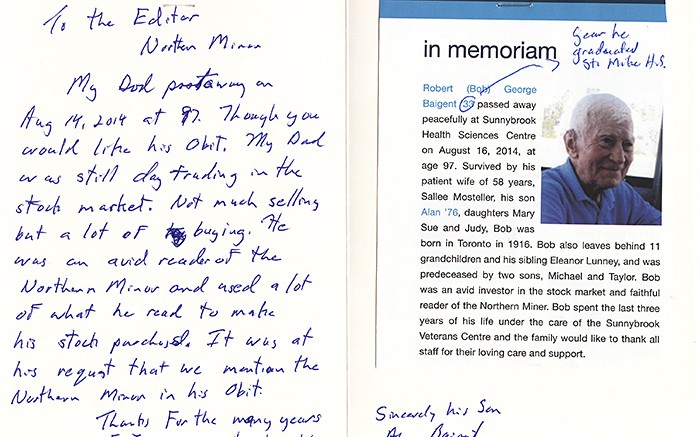 To the Editor
Northern Minor
My Dad past away on
Aug 14, 2014 at 97. Though you
would like his Obit. My Dad
was still day trading in the
stock market. Not much selling
but a lot of buying. He
was an avid reader of the
Northern Minor and used a lot
of what he read to make
his stock purchases. It was at
his request that we mention the
Northern Minor in his Obit.
Thanks For the many years
in memoriam
year he
graduated
St. Mikes H.S.
Robert (Bob) George
Baigent 33 passed away
peacefully at Sunnybrook
Health Sciences Centre
on August 16, 2014, at
age 97. Survived by his
patient wife of 58 years,
Sallee Mosteller, his son
Alan '76, daughters Mary
Sue and Judy, Bob was
born in Toronto in 1916. Bob also leaves behind 11
grandchildren and his sibling Eleanor Lunney, and was
predeceased by two sons, Michael and Taylor. Bob
was an avid investor in the stock market and faithful
reader of the Northern Miner. Bob spent the last three
years of his life under the care of the Sunnybrook
Veterans Centre and the family would like to thank all
staff for their loving care and support.
Sincerely his Son
Baigent